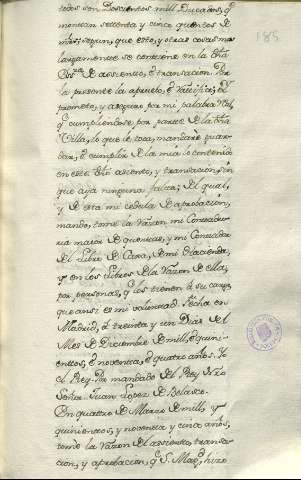 185
todos son Doscientos mill Ducados, q̃
montan settenta y cinco quentos de
mrs; segun, que esto, y otras cosas mas
largamente se contiene en la dha
Escra de assiento, è transacion. Por
la presente la apruebo, è ratifico; è
prometo, y asseguro por mi palabra Rl,
q̃ cumpliendose por parte de la dha
Villa, lo que le toca, mandarè guar-
dar, è cumplir de la mia lo contenido
en este dho asiento, y transacion, sin
que aya ninguna falta; del qual,
y de esta mi cedula de aprobacion,
mando, tome la Razon mi Contadu-
ria maior de quentas, y mi Contador
del Libro de Caxa, de mi Hacienda,
y en los Libros de la Razon de ella,
por personas, q̃ los tienen à su cargo,
que ansi es mi voluntad. Fecha en
Madrid, à treinta y un Dias del
Mes de Diciembre de mill, è quini-
enttos, è noventa, è quatro años. Yo
el Rey. Por mandado del Rey Nro
Señor Juan Lopez de Belasco.
En quattro de Marzo de mill, y
quinientos, y noventa y cinco años,
tomè la Razon del assiento, transa-
cion, y aprobacion, q̃ S. Magd hizo